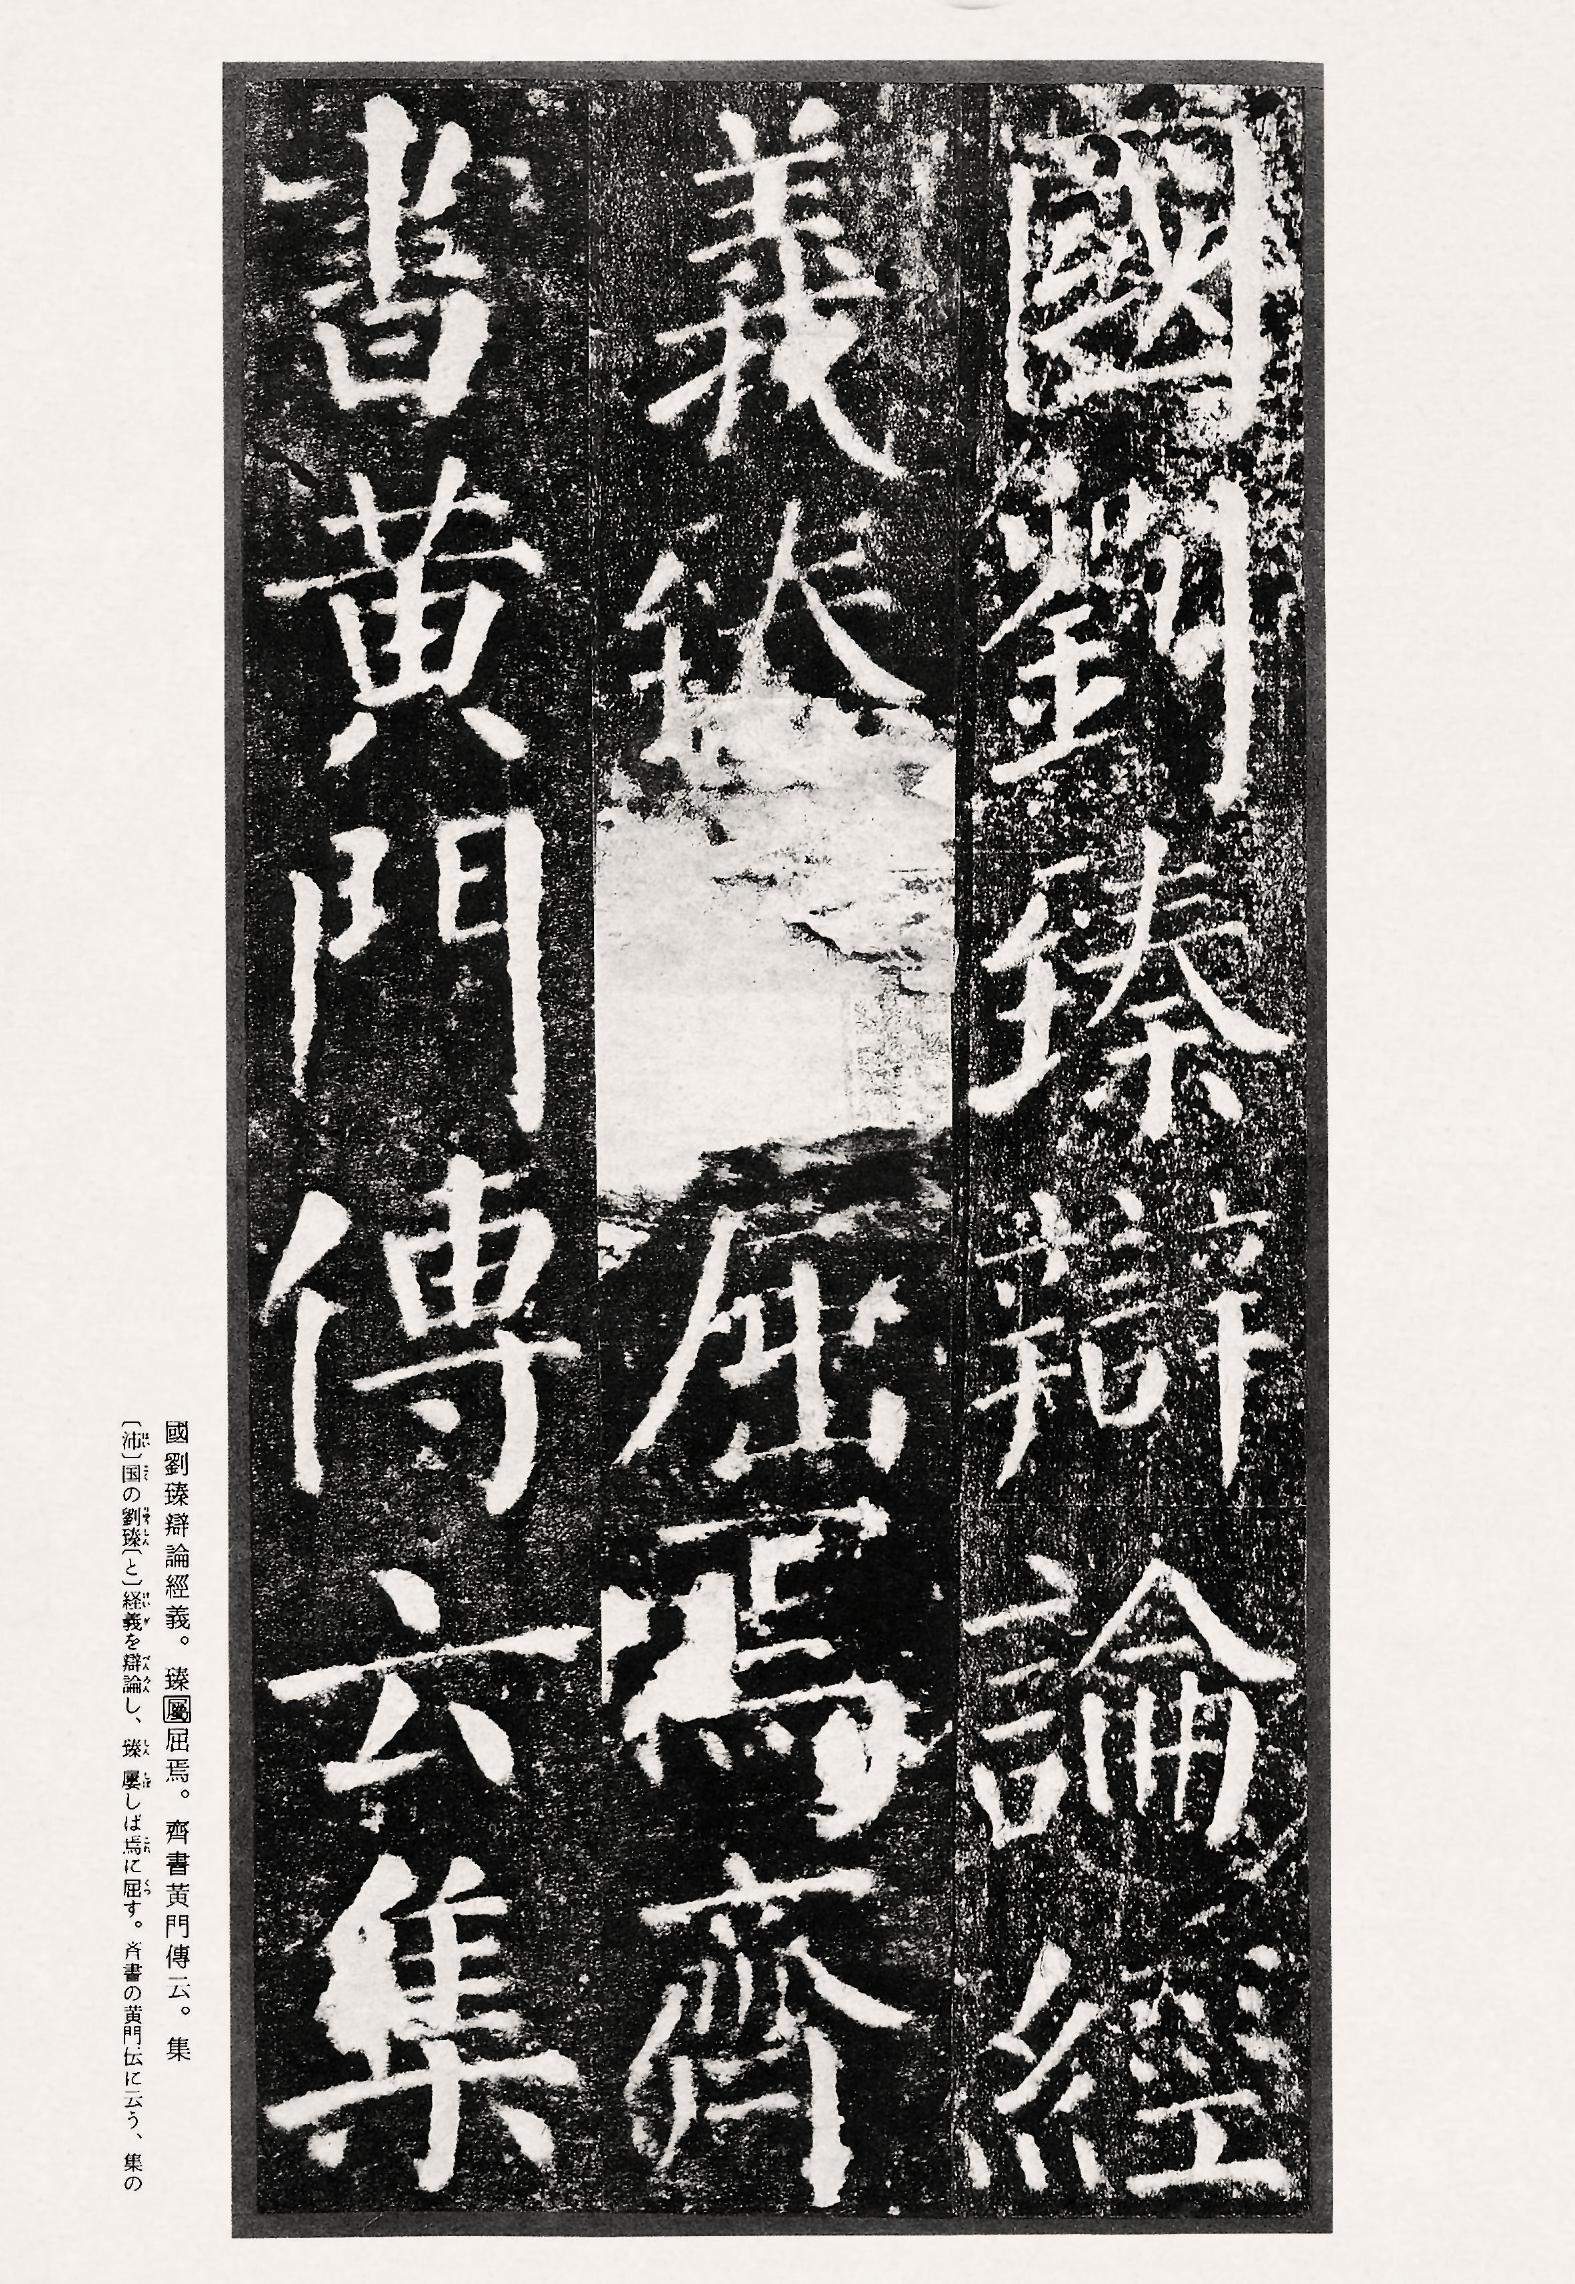 國劉臻辯論經
義臻屈焉齊
書黄門傳云集
國劉臻辯論經義。臻屢屈焉。齊書黄門傳云。集
〔沛〕国の劉臻〔と〕経義を辯論し、臻屢しば焉に屈す。斉書の黄門伝に云う、集の